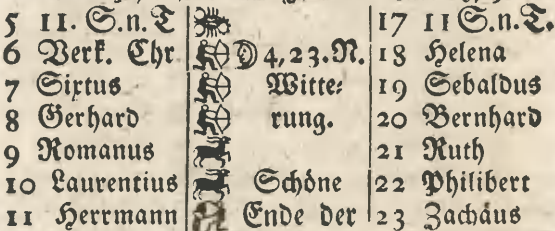 5 11. S.n.T 17 11 S.n.T.
6 Verk. Chr ☽ 4, 23. N. 18 Helena
7 Sixtus Witte⸗ 19 Sebaldus
8 Gerhard rung. 20 Bernhard
9 Romanus 21 Ruth
10 Laurentius Schöne 22 Philibert
11 Herrmann Ende der 23 Zachäus